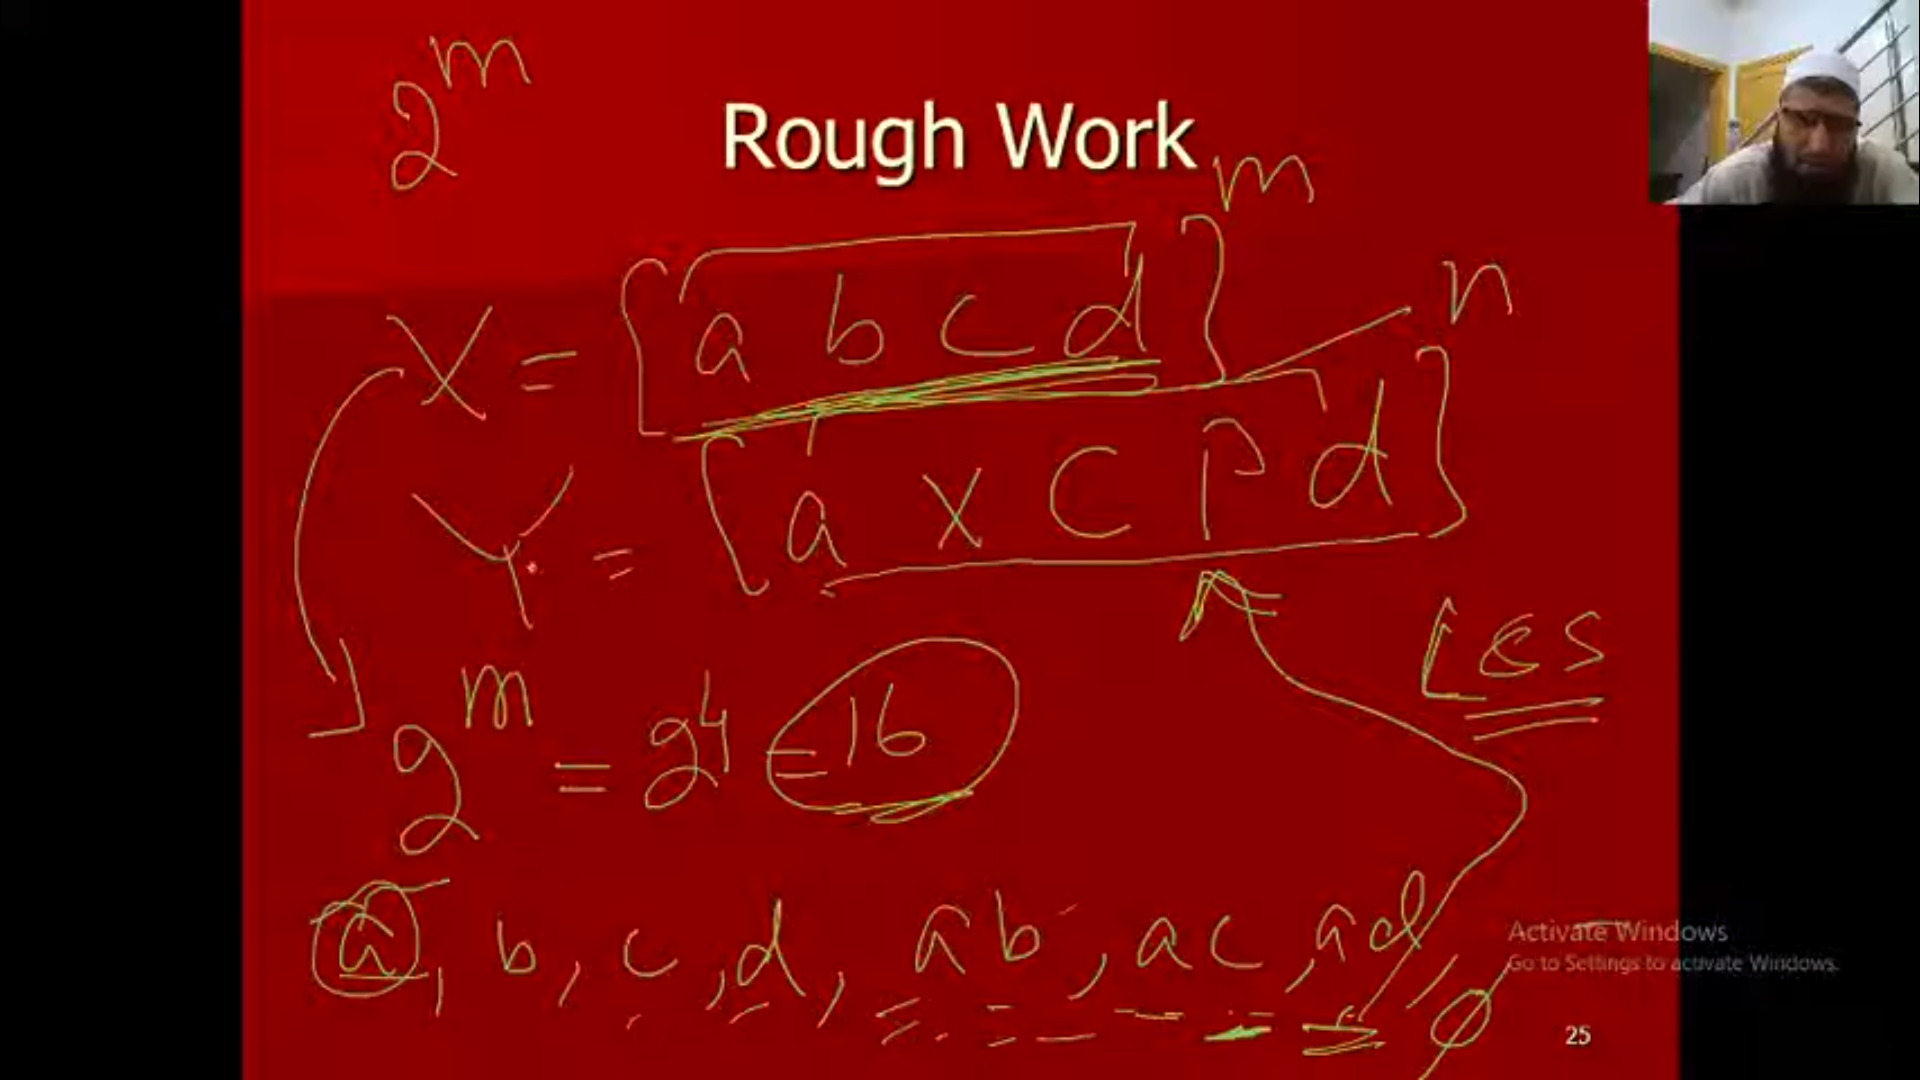 2^m
Rough Work
X = [a b c d]^m
n
Y = [a x c p d]
LCS
2^m = 2^4 = 16
a, b, c, d, ab, ac, ad, φ
Activate Windows
Go to Settings to activate Windows.
25